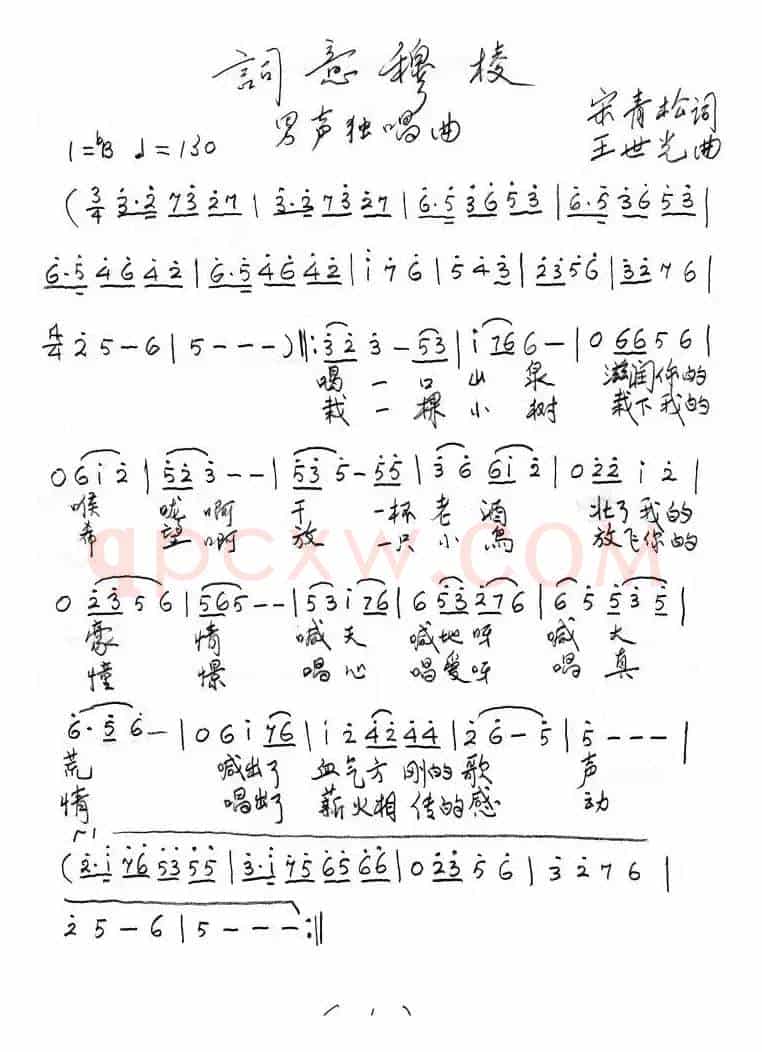 詞意穆棱
男声独唱曲
宋青松词
王世光曲
1=♭B ♩=130
(3/4 3·2 73 27 | 3·2 73 27 | 6·5 36 53 | 6·5 36 53 |
6·5 46 42 | 6·5 46 42 | i 7 6 | 5 43 | 23 56 | 32 7 6 |
4/4 2 5 - 6 | 5 - - - ) ‖: 32 3 - 53 | i 76 6 - | 0 66 5 6 |
喝一口山泉 滋润你的
栽一棵小树 栽下我的
0 6 i 2 | 52 3 - - | 53 5 - 55 | 3 6 6i 2 | 0 22 i 2 |
喉咙啊 干一杯老酒 壮了我的
希望啊 放一只小鳥 放飞你的
0 23 5 6 | 565 - - | 53 i 76 | 6 53 276 | 6 5 53 5 |
豪情 喊天 喊地呀 喊大
憧憬 唱心 唱爱呀 唱真
6· 5 6 - | 0 6 i 76 | i 2 42 44 | 2 6 - 5 | 5 - - - |
荒 喊出了 血气方刚的歌声
情 唱出了 薪火相传的感动
(2·i 76 53 55 | 3·i 75 65 66 | 0 23 5 6 | 3 2 7 6 |
2 5 - 6 | 5 - - - :‖
(1)
qpcxw.com